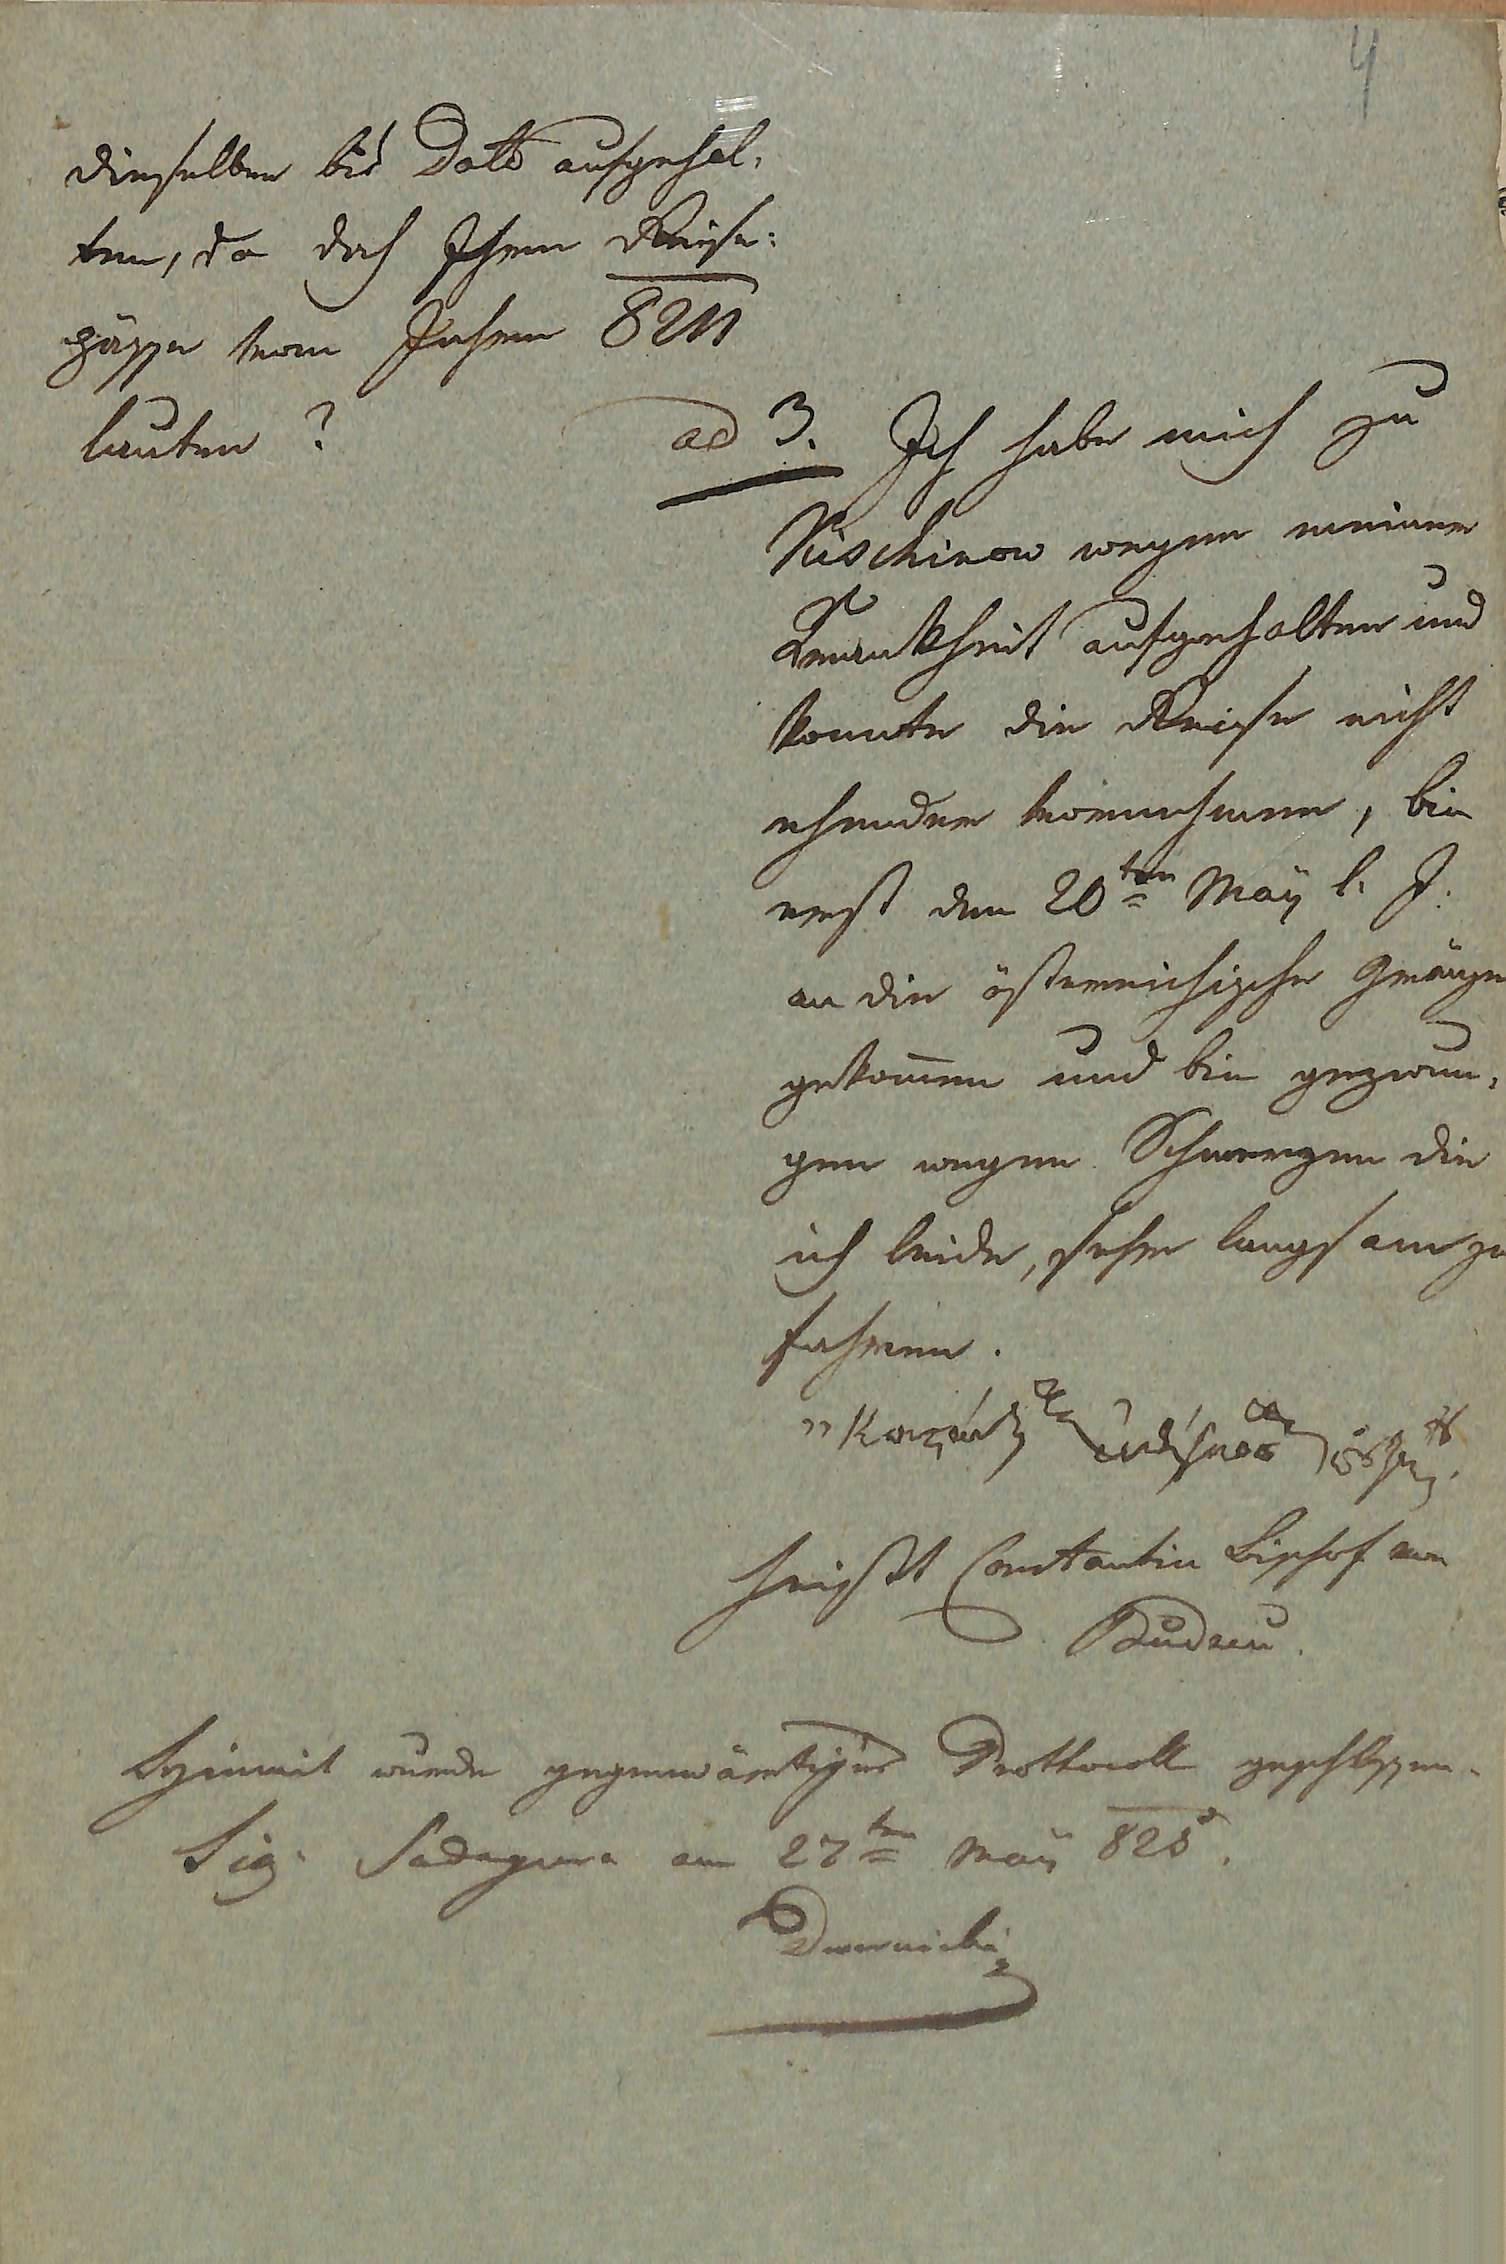 4
dieselben bis Dato aufgehal-
ten, da doch Ihre Reise-
päße vom Jahre 824
lauten?
ad 3. Ich habe mich zu
Kischinow wegen meiner
Krankheit aufgehalten und
konnte die Reise nicht
ehender vornehmen, bin
erst den 20ten May l. J.
an die österreichische Gränze
gekomen und bin gezwun-
gen wegen Schmerzen die
ich leide, sehr langsam zu
fahren.
heißt Constantin Bischof von
Budeu.
Hiemit wurde gegenwärtiges Prottocoll geschlossen.
Sig. Sadagura am 27ten May 825.